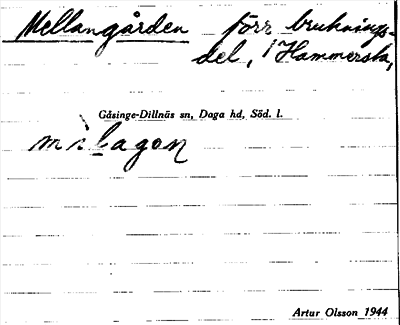 Mellangården förr bruknings-
del, i Hammersta,
Gåsinge-Dillnäs sn, Daga hd, Söd. l.
Artur Olsson 1944